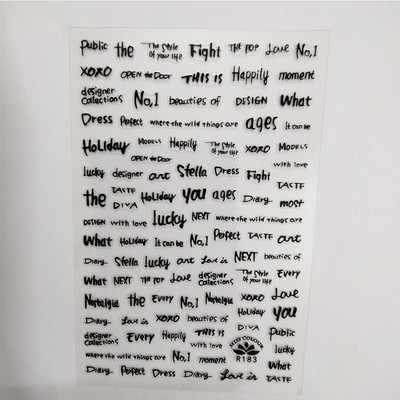 Public the The Style of your life Fight THE POP Love No,1
XOXO OPEN the DOOR THIS IS Happily moment
designer Calections No,1 beauties of DESIGN What
Dress Perfect where the wild things are ages It can be
Holiday MODELS Happily The Style of your life XOXO MODELS
OPEN the DOOR with love
lucky designer art Stella Dress Fight TASTE
the TASTE DIVA Holiday you ages Diary most
DESIGN with love lucky NEXT where the wild things are
What Holiday It can be No,1 Perfect TASTE art
Diary Stella lucky art Love is NEXT beauties of
What NEXT THE POP Love designer Calections The Style of your life Every
Nostalgia the Every No,1 Nostalgia XOXO Love
Diary Love is XOXO beauties of Holiday you
designer Calections Every Happily THIS IS DIVA Public
where the wild things are No,1 moment MISS COLOUR R183 lucky What
Diary Perfect Dress Diary Love is TASTE